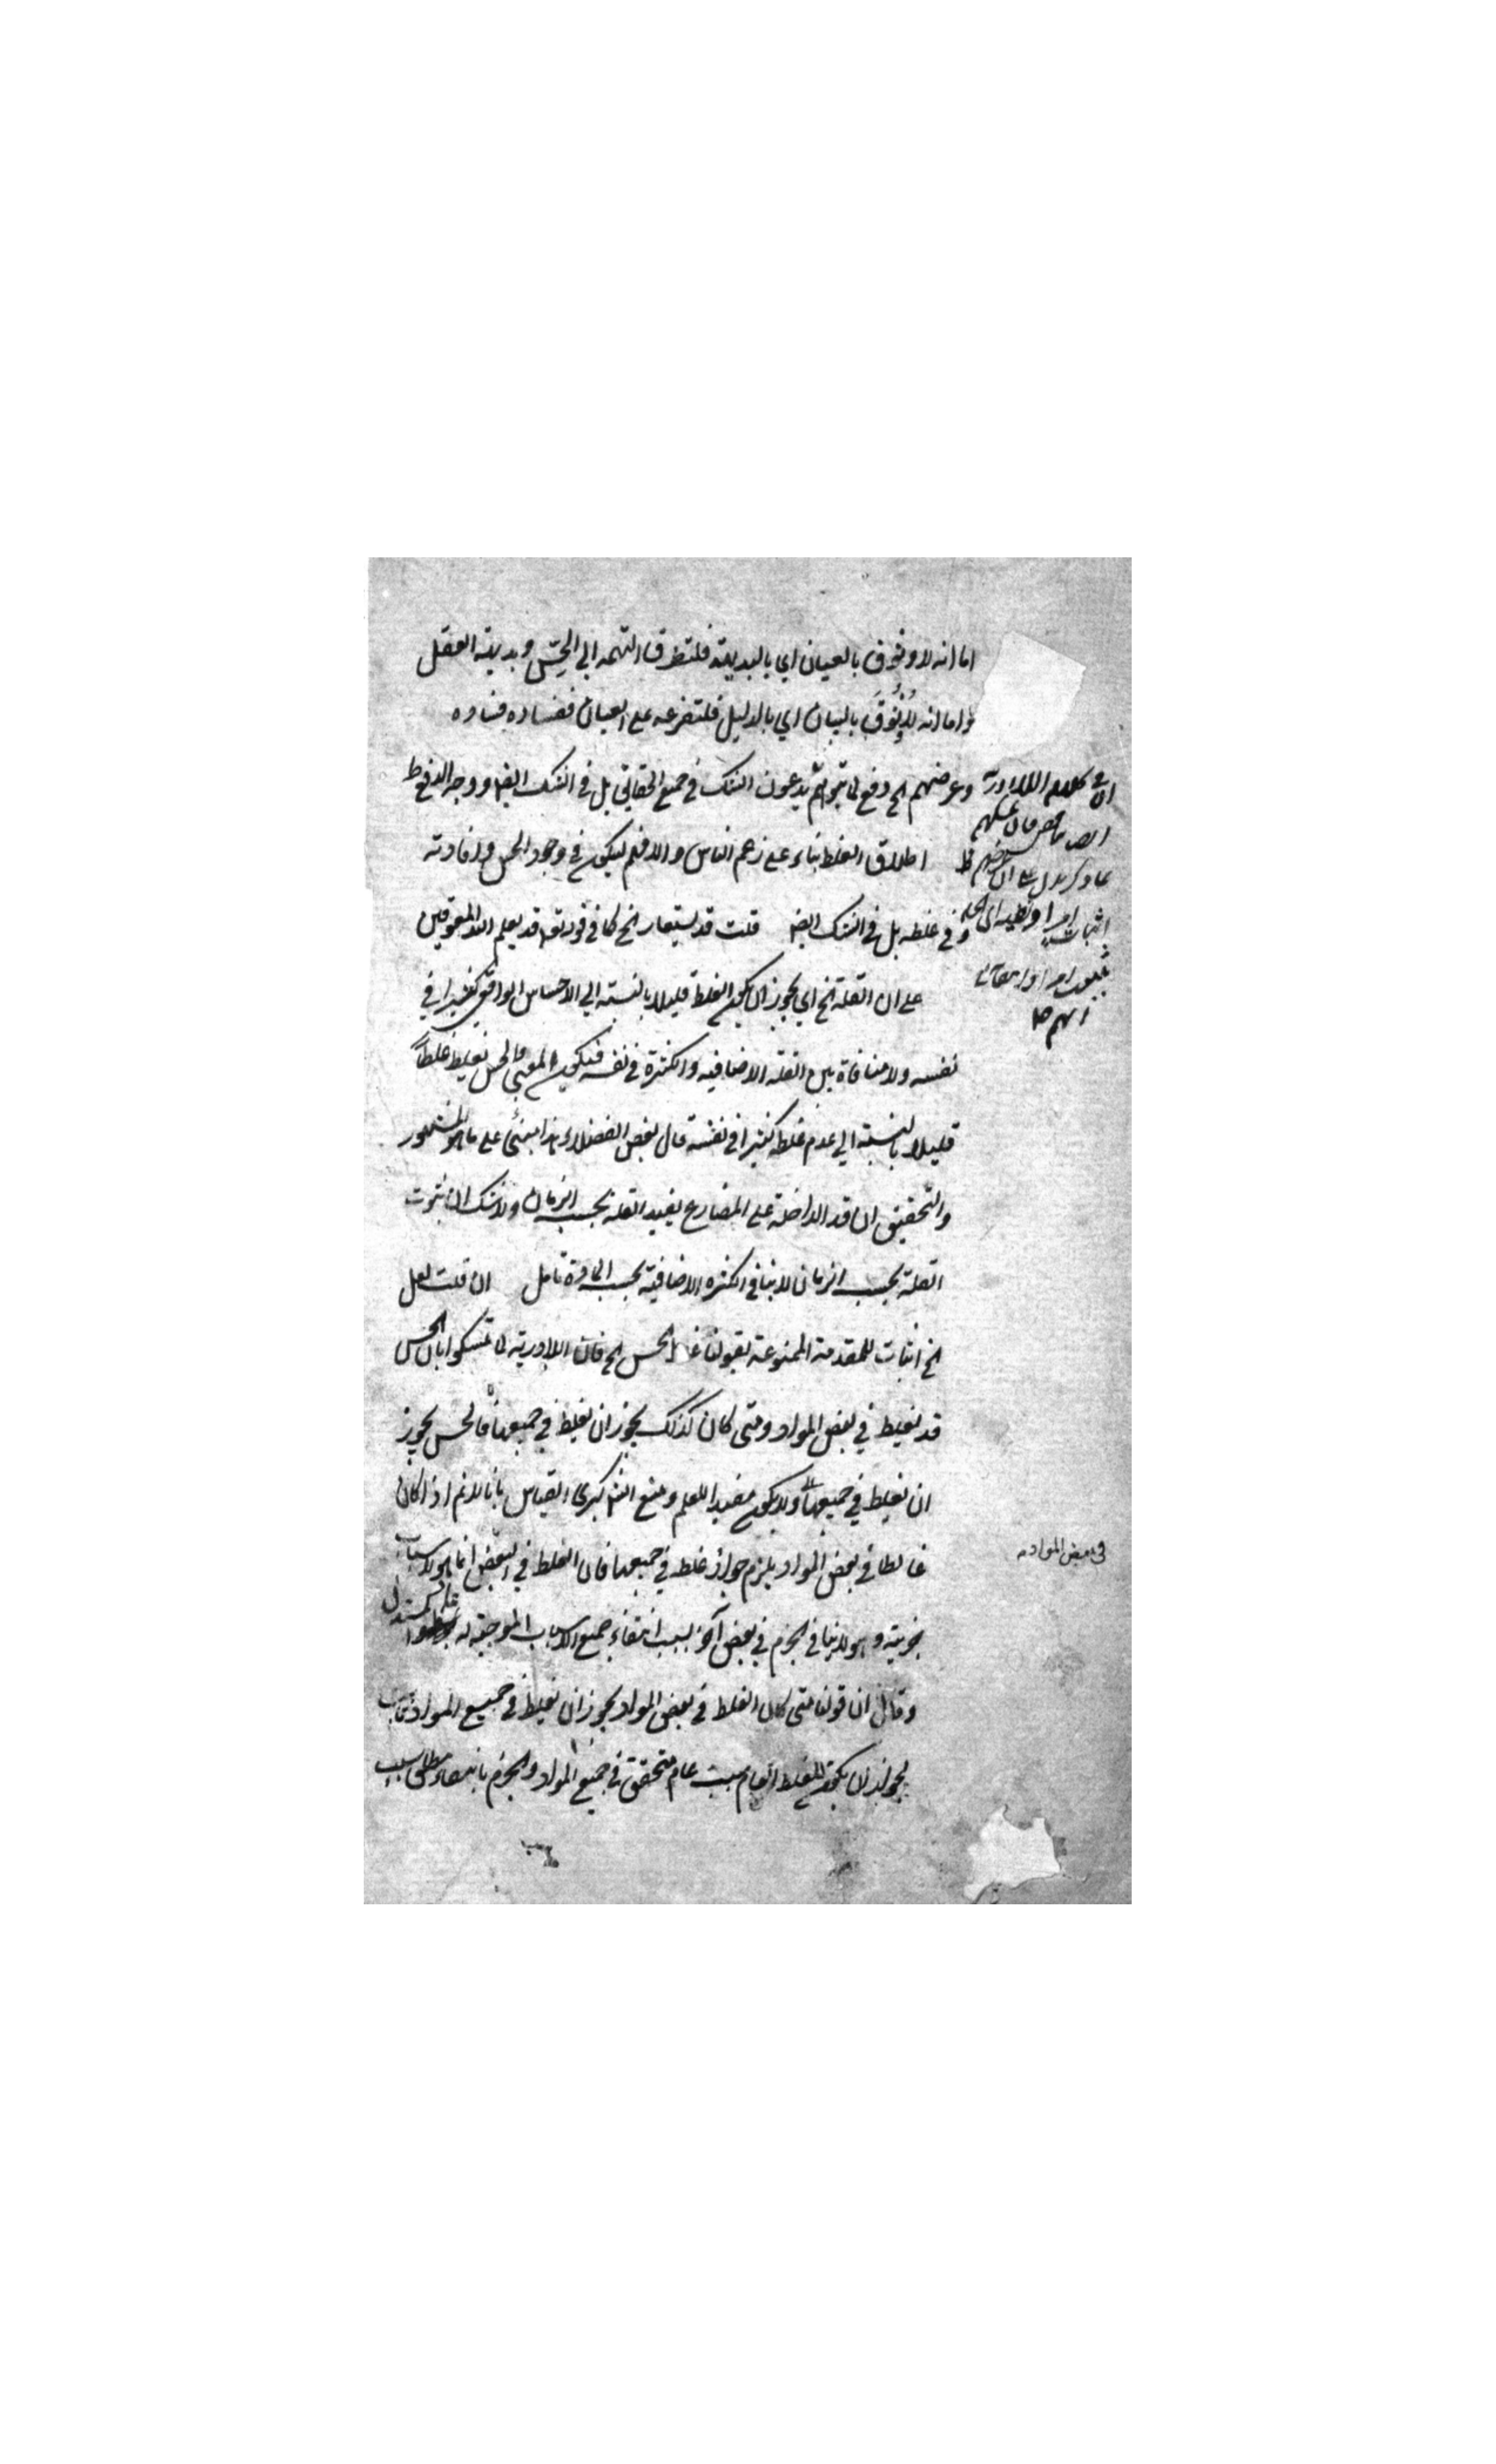 اما انه لا وثوق بالعيان اي بالبديهة فلتطرق التهمة الي الحِسّ وبديهة العقل
واما انه لا وُثُوقَ بالبيان اي بالدليل فلتفرعه على العيان ففساده فساده
وغرضهم الخ دفع لما يتوهم يدعون الشك في جميع الحقائق بل في الشك ايضا ووجه الدفع ط
اطلاق الغلط بناء على زعم الناس والا فلم ليكون في وجود الحس وافادته
وفي غلطه بل في الشك ايضا قلت قد يستعار الخ كما في قوله تعه قد يعلم الله المعوقين
على ان القلة الخ اي يجوز ان يكون الغلط قليلا بالنسبة الي الاحساس الواقعي كثيرا في
نفسه ولا منافاة بين القلة الاضافية والكثرة في نفسه فيكون المعني والحس يغلط غلطاً
قليلا بالنسبة الي عدم غلطه كثيرا في نفسه قال بعض الفضلاء هذا مبنيٌّ على ما هو المشهور
والتحقيق ان قد الداخلة على المضارع يفيد القلة بحسب الزمان ولا شك ان ثبوت
القلة بحسب الزمان لا ينافي الكثرة الاضافية بحسب المادة تامل ان قلت لعل
الخ اثبات للمقدمة الممنوعة بقولنا غلط الحس الخ فان اللاادرية لما تمسكوا بان الحس
قد يغلط في بعض المواد ومتى كان كذلك يجوز ان يغلط في جميعها فالحس يجوز
ان يغلط في جميعها ولا يكون مفيدا للعلم ومنع الشه كبرى القياس بانا لا نم اذا كان
غالطا في بعض المواد يلزم جواز غلطه في جميعها فان الغلط في البعض انما هو لاسباب
جزئية وهو لا ينافي الجزم في بعض آخر بسبب انتفاء جميع الاسباب الموجبة له
على المستدل
وقال ان قولنا متى كان الغلط في بعض المواد يجوز ان يغلط في جميع المواد ثابت
لجواز ان يكون للغلط العام سبب عام متحقق في جميع المواد والجزم بانتفاء مطلق سبب
كلام اللاادرية
في بعض المواد